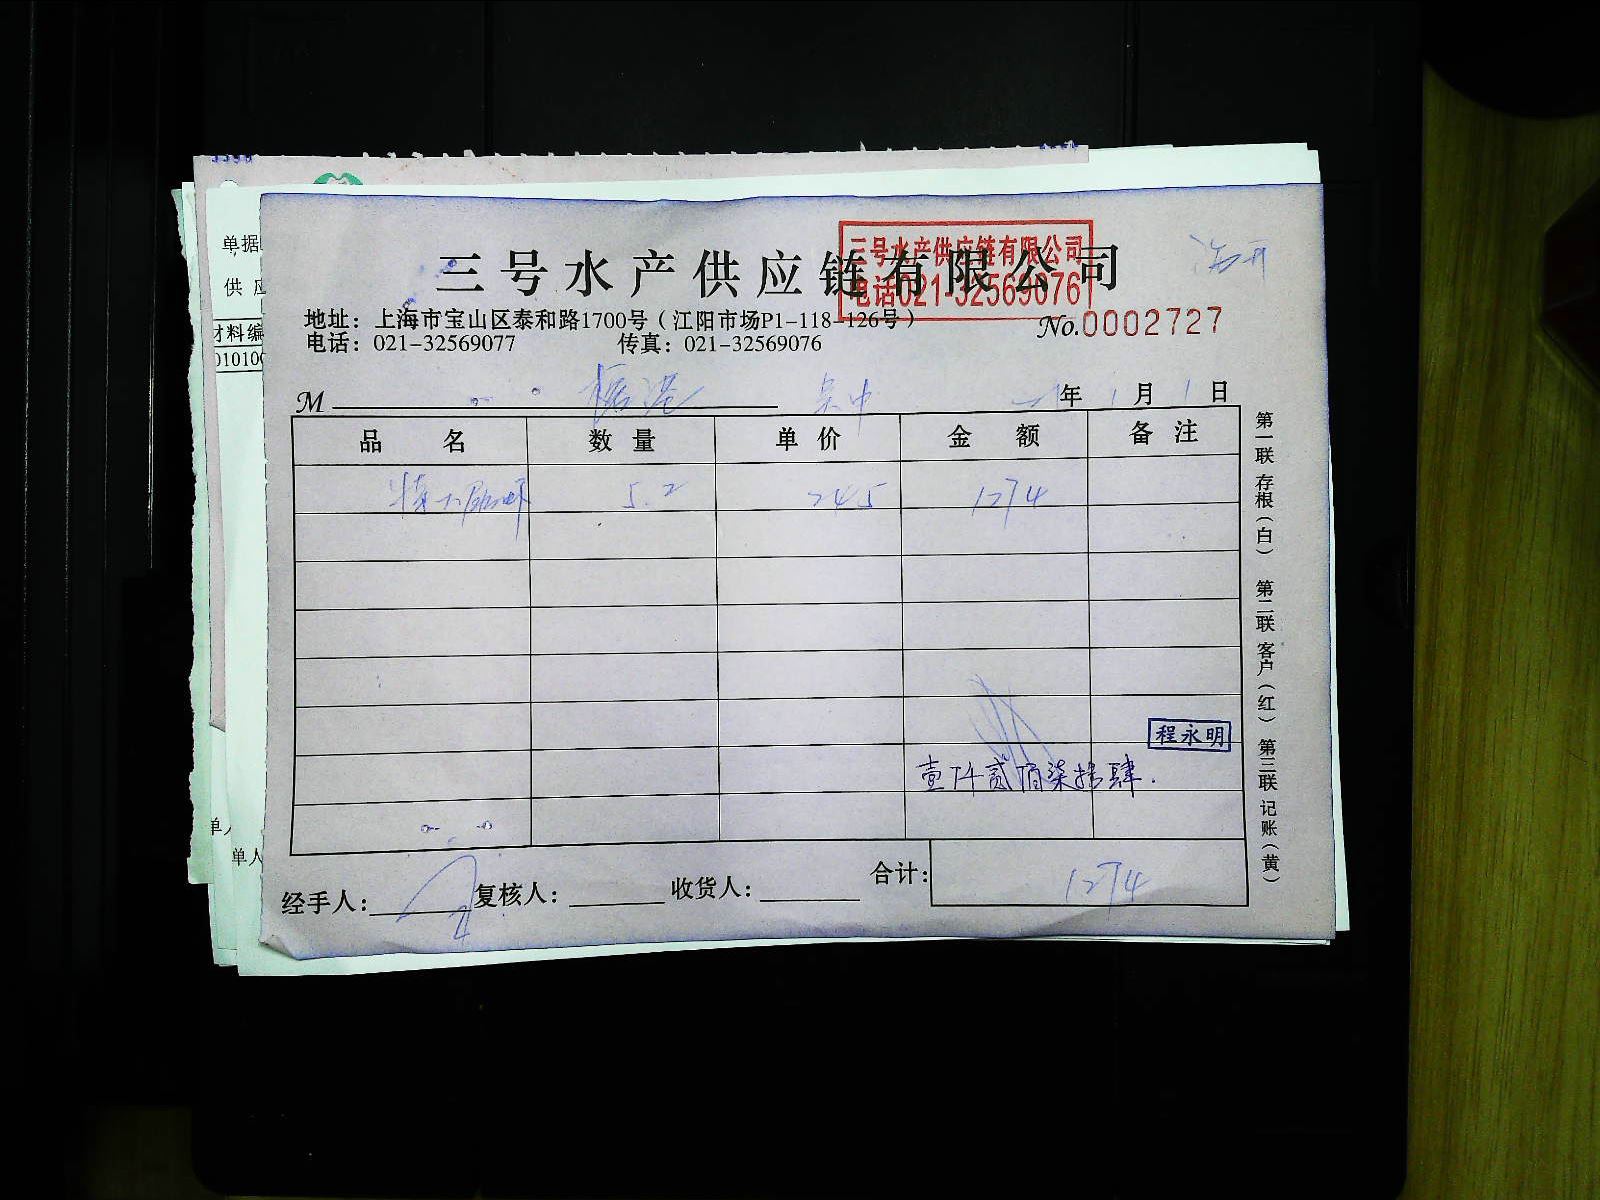 三号水产供应链有限公司
三号水产供应链有限公司
电话021-32569076
地址：上海市宝山区泰和路1700号（江阳市场P1-118-126号）
电话：021-32569077 传真：021-32569076
No.0002727
M 年 1月 1日
品名 数量 单价 金额 备注
特大 5.2 245 1274
程永明
壹仟贰佰柒拾肆.
经手人： 复核人： 收货人： 合计： 1274
第一联 存根（白） 第二联 客户（红） 第三联 记账（黄）
单据
供应
材料编
01010
单人
单人